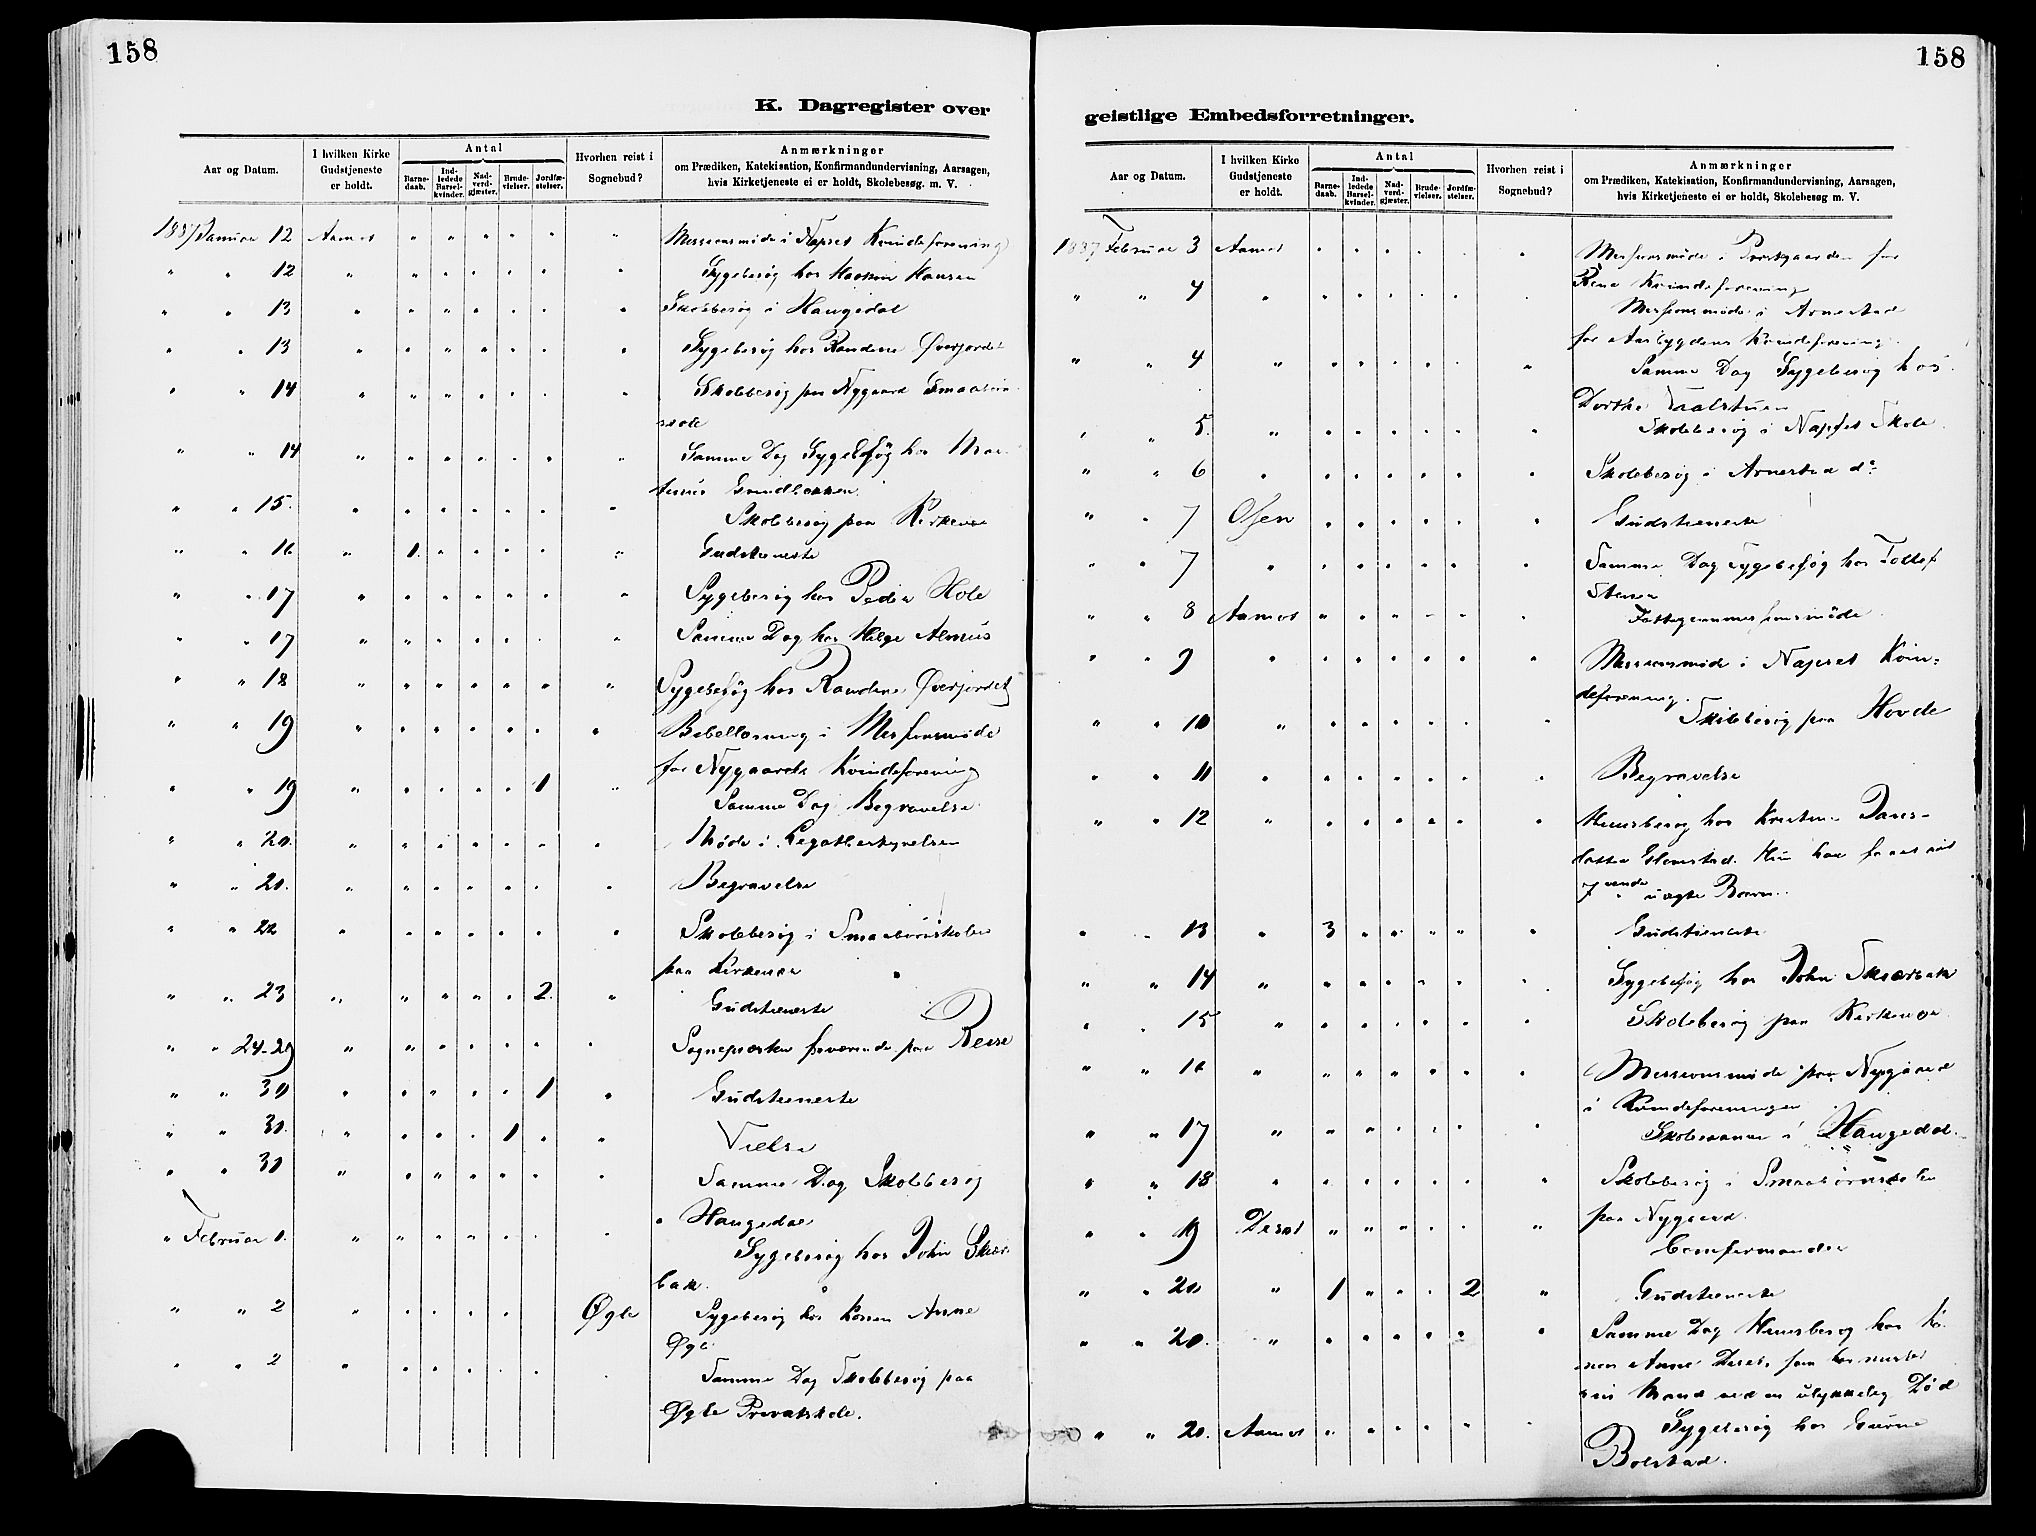 158
K. Dagregister over
Aar og Datum.
I hvilken Kirke Gudstjeneste er holdt.
Antal
Barne-daab.
Ind-ledede Barsel-kvinder.
Nad-verd-gjæster.
Brude-vielser.
Jordfæ-stelser.
Hvorhen reist i Sognebud?
Anmærkninger
om Prædiken, Katekisation, Konfirmandundervisning, Aarsagen,
hvis Kirketjeneste ei er holdt, Skolebesøg. m. V.
1887 Januar 12 Aamot " " " " " " Missionsmøde i Næpset Kvindeforening
" " 12 " " " " " " " Sygebesøg hos Haakon Hansen
" " 13 " " " " " " " Skolebesøg i Haugedal
" " 13 " " " " " " " Sygebesøg hos Randine Øverjordet
" " 14 " " " " " " " Skolebesøg paa Nygaard Smaabørn
skole
" " 14 " " " " " " " Samme Dag Sygebesøg hos
" " 15. " " " " " " " Skolebesøg paa Kirkenær
" " 16 " 1. " " " " " Gudstieneste
" " 17 " " " " " " " Sygebesøg hos Peder Hole
" " 17 " " " " " " " Samme Dag hos Helge Alméus
" " 18 " " " " " " " Sygebesøg hos Randine Øverjordet
" " 19 " " " " " " " Bibellæsning i Missionsmøde
for Nygaards Kvindeforening
" " 19 " " " " " 1 " Samme Dag Begravelse
" " 20. " " " " " " " Møde i Legatbestyrelsen
" " 21. " " " " " " " Begravelse
" " 22 " " " " " " " Skolebesøg i Smaabørnskolen
paa Kirkenær
" " 23 " " " " " 2. " Gudstieneste
" " 24-29 " " " " " " " Sognepresten fraværende paa Reise
" " 30 " " " " " 1 " Gudstieneste
" " 30. " " " " 1 " " Vielse
" " 30 " " " " " " " Samme Dag Skolebesøg
i Haugedal
" Februar 1. " " " " " " " Sygebesøg hos John Skær-
bæk.
" " 2 " " " " " Øgle Sygebesøg hos Konen Anne
Øgle
" " 2 " " " " " " " Samme Dag Skolebesøg paa
Øgle Privatskole.
158
geistlige Embedsforretninger.
Aar og Datum.
I hvilken Kirke Gudstjeneste er holdt.
Antal
Barne-daab.
Ind-ledede Barsel-kvinder.
Nad-verd-gjæster.
Brude-vielser.
Jordfæ-stelser.
Hvorhen reist i Sognebud?
Anmærkninger
om Prædiken, Katekisation, Konfirmandundervisning, Aarsagen,
hvis Kirketjeneste ei er holdt, Skolebesøg m. V.
1887 Februar 3 Aamot " " " " " " Missionsmøde i Præstgaarden for
Rena Kvindeforening
" " 4 " " " " " " " Missionsmøde i Arnestad
for Aasbygdens Kvindeforening.
" " 4 " " " " " " " Samme Dag Sygebesøg hos
Dorthe Taalstuen
" " 5. " " " " " " " Skolebesøg i Næpset Skole.
" " 6 " " " " " " " Skolebesøg i Arnestad do
" " 7 Osen " " " " " " Gudstieneste
" " 7 " " " " " " " Samme Dag Sygebesøg hos Tollef
Stenen
" " 8 Aamot " " " " " " Fattigcommissionsmøde.
" " 9 " " " " " " " Missionsmøde i Næpset Kvin-
deforening.
" " 10 " " " " " " " Skolebesøg paa Hovde
" " 11 " " " " " " " Begravelse
" " 12 " " " " " " " Huusbesøg hos Kristine Dans-
Glemstad. Hun har faaet sit
7 ende uægte Barn.
" " 13 " 3 " " " " " Gudstieneste
" " 14 " " " " " " " Sygebesøg hos John Skærbæk
" " 15 " " " " " " " Skolebesøg paa Kirkenær.
" " 16 " " " " " " " Missionsmøde paa Nygaard
i Kvindeforeningen
" " 17 " " " " " " " Skoleexamen i Haugedal.
" " 18 " " " " " " " Skolebesøg i Smaabørnskolen
paa Nygaard.
" " 19 Deset " " " " " " Confirmander
" " 20 " 1 " " " 2 " Gudstieneste
" " 20. " " " " " " " Samme Dag Huusbesøg hos Ko-
nen Anne Deset, som har mistet
sin Mand ved en ulykkelig Død
" " 20. Aamot " " " " " " Sygebesøg hos Gurine
Bolstad.